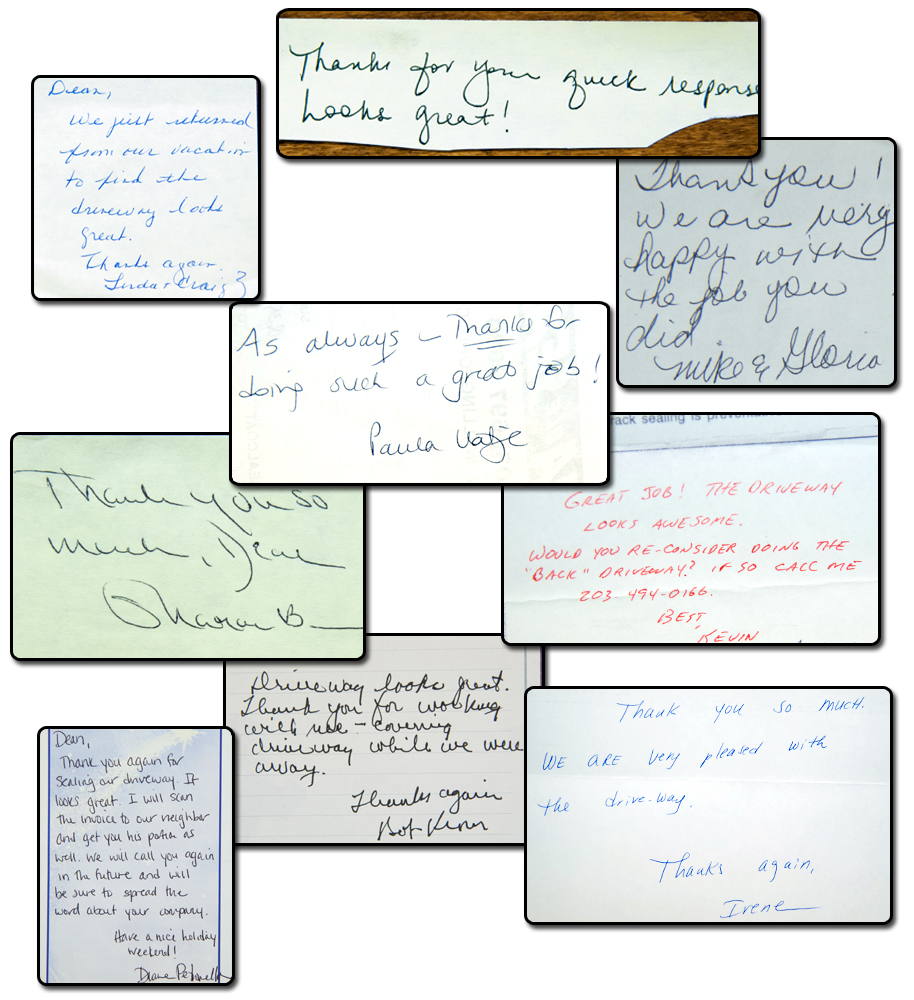 Thanks for your quick response
Looks great!
Dean,
We just returned
from our vacation
to find the
driveway looks
great.
Thanks again.
Linda & Craig
Thank you!
We are very
happy with
the job you
did
Mike & Gloria
As always – Thanks for
doing such a great job!
Paula
Thank you so
much, Dean
Sharon B
rack sealing is preventat
GREAT JOB! THE DRIVEWAY
LOOKS AWESOME.
WOULD YOU RE-CONSIDER DOING THE
"BACK" DRIVEWAY? IF SO CALL ME
203-494-0166.
BEST,
KEVIN
Driveway looks great.
Thank you for working
with me – covering
driveway while we were
away.
Thanks again
Bob
Thank you so much.
WE ARE very pleased with
the drive-way.
Thanks again,
Irene
Dean,
Thank you again for
sealing our driveway. It
looks great. I will scan
the invoice to our neighbor
and get you his portion as
well. We will call you again
in the future and will
be sure to spread the
word about your company.
Have a nice holiday
weekend!
Diane